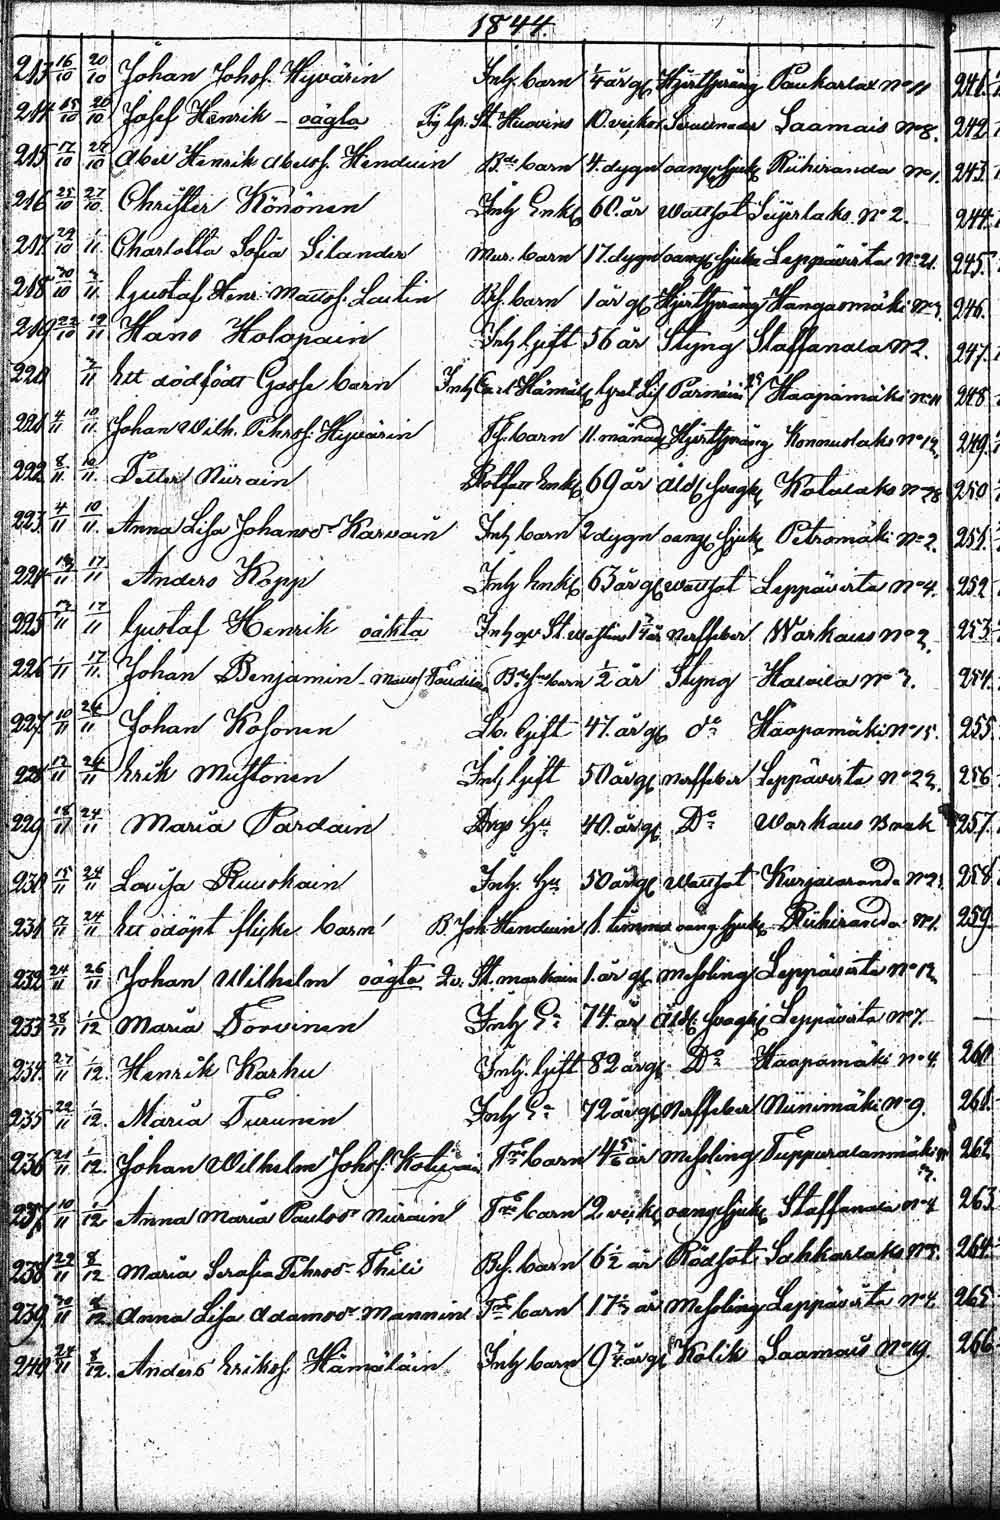 1844
213 16/10 20/10 Johan Johsf. Hyvärin Inh. barn 1/4 år gl Hjertsprång Paukarlax No 11
214 15/10 20/10 Josef Henrik oägta St. 10. vickor Laamais No 8.
215 17/10 27/10 Abel Henrik Abelsf. Henduin Bde barn 4. dygn oang. sjuk Riikiranda No 1.
216 25/10 27/10 Christer Könönen Inh Enkl 60. år Wattsot Seijerlaks No 2.
217 29/10 1/11 Charlotta Sofia Silander Mur. barn 17. dygn oang. sjuk Leppävirta No 21.
218 30/10 3/11 Gustaf Henr. Mattsf. Lautin Bf. barn 1 år gl Hjertsprång Kangasmäki No 3.
219 22/10 10/11 Hans Holopain Inh gift 56 år Styng Staffanala No 2.
220 3/11 Ett dödfödt Gosse barn Inh Carl Haapamäki No 11
221 4/11 10/11 Johan Wilh. Pehrsf. Hyvärin barn 11. månad Hjertsprång Konnuslaks No 12.
222 8/11 10/11 Petter Niirain Enkl 69 år åld. svagh Kotalaks No 28
223 4/11 10/11 Anna Lisa Johansdr Karvain Inh barn 2 dygn oang sjuk Petromäki No 2.
224 13/11 17/11 Anders Kopp Inh Enkl 63 år gl Wattsot Leppävirta No 4.
225 12/11 17/11 Gustaf Henrik oäkta Inh qv St. 1 3/4 år Nerffeber Warkaus No 2.
226 17/11 Johan Benjamin barn 1/2 år Styng No 3.
227 10/11 24/11 Johan Kosonen Gift 47. år gl do Haapamäki No 15.
228 17/11 24/11 Erik Mustonen Inh gift 50 år gl Nerffeber Leppävirta No 22.
229 18/11 24/11 Maria Pardain Hu 40. år gl Do Warkaus Bruk
230 15/11 24/11 Lovisa Ruuskain Inh. Hu 50 år gl Wattsot Kurjalaranda No 21.
231 17/11 24/11 Ett odöpt flicke barn B. Joh. Henduin 1. timma oang sjuk Riikiranda No 1.
232 24/11 26/11 Johan Wilhelm oägta St. 1. år gl Messling Leppävirta No 12
233 28/11 1/12 Maria Torvinen Inh Ea 74. år åld. svagh Leppävirta No 7.
234 27/11 1/12. Henrik Karhu Inh. gift 82 år gl. Do Haapamäki No 4.
235 29/11 1/12. Maria Turunen Inh Ea 72 år gl Nerffeber Niinimäki No 9.
236 21/11 1/12. Johan Wilhelm Johsf. barn 4 5/6 år Messling Tuppuralanmäki No 3.
237 10/11 1/12 Anna Maria Paulsdr Niirain barn 2 vick. oang sjuk Staffanala No 4
238 29/11 8/12 Maria Serafia Pehrsdr Thili Bf. barn 6 1/2 år Rödsot Sahkarlaks No 3.
239 30/11 8/12 Anna Lisa Adamsdr Mannin barn Messling Leppävirta No 4.
240 24/11 8/12. Anders Eriksf. Hämäläin Inh barn 9 3/4 år gl Kolik Laamais No 19.
241.
242
243.
244.
245.
246.
247.
248
249.
250
251.
252
253
254.
255.
256
257.
258
259
260
261.
262
263
264.
265
266